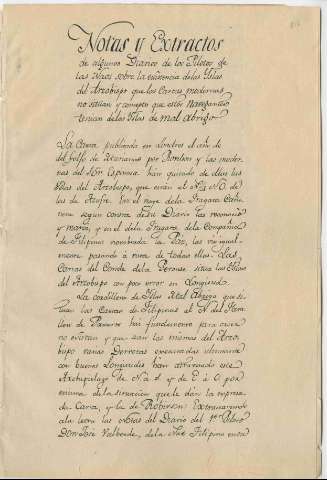 Notas y Extractos
de algunos Diarios de los Pilotos de
las Naos sobre la existencia de las Yslas
del Arzobispo que las Cartas modernas
no sitúan y concepto que estos Navegantes
tenian de las Yslas de mal abrigo
La Carta publicada en Londres el año de
del Golfo de Atocanas por y las moder-
nas del Mr. Espinosa han quitado de ellas las
Yslas del Arzobispo, que están al N O. de
las de Azufre. La el Gefe de la Fragata Casta
tiene segun consta de su Diario las reconoció
y marcó, y en el de la Fragata de la Compañia
de Filipinas nombrada la Paz, las vió igual-
mente pasando á vista de todas ellas. Las
Cartas del Conde de la Perouse situa las Yslas
del Arzobispo con poco error en Longitud.
La cordillera de Yslas Mal Abrigo que si-
tuan las Cartas de Filipinas al N. del
de Pajaros hai fundamento para creer
no existen y que son las mismas del Arzo-
bispo varias Derrotas executadas ultimamte
con buenos Longitudes han atravesado este
Archipielago de N a S y de E á O. por
encima de la situacion que le dan la expresa-
da Carta, y la de Robinson: Extractando
á la letra las notas del Diario del 1er Piloto
Don José Valverde, de la Nao Filipina